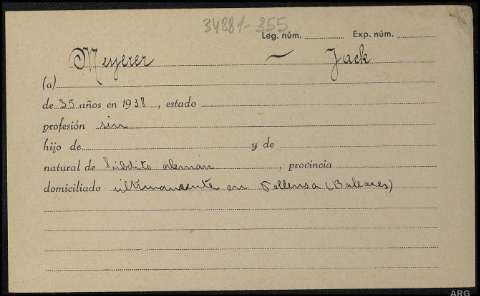 34881-255
Leg. núm. Exp. núm.
Meyerer ~ Jack
(a)
de 35 años en 1938, estado
profesión sin
hijo de y de
natural de súbdito aleman, provincia
domiciliado últimamente en Pollensa (Baleares)
ARG